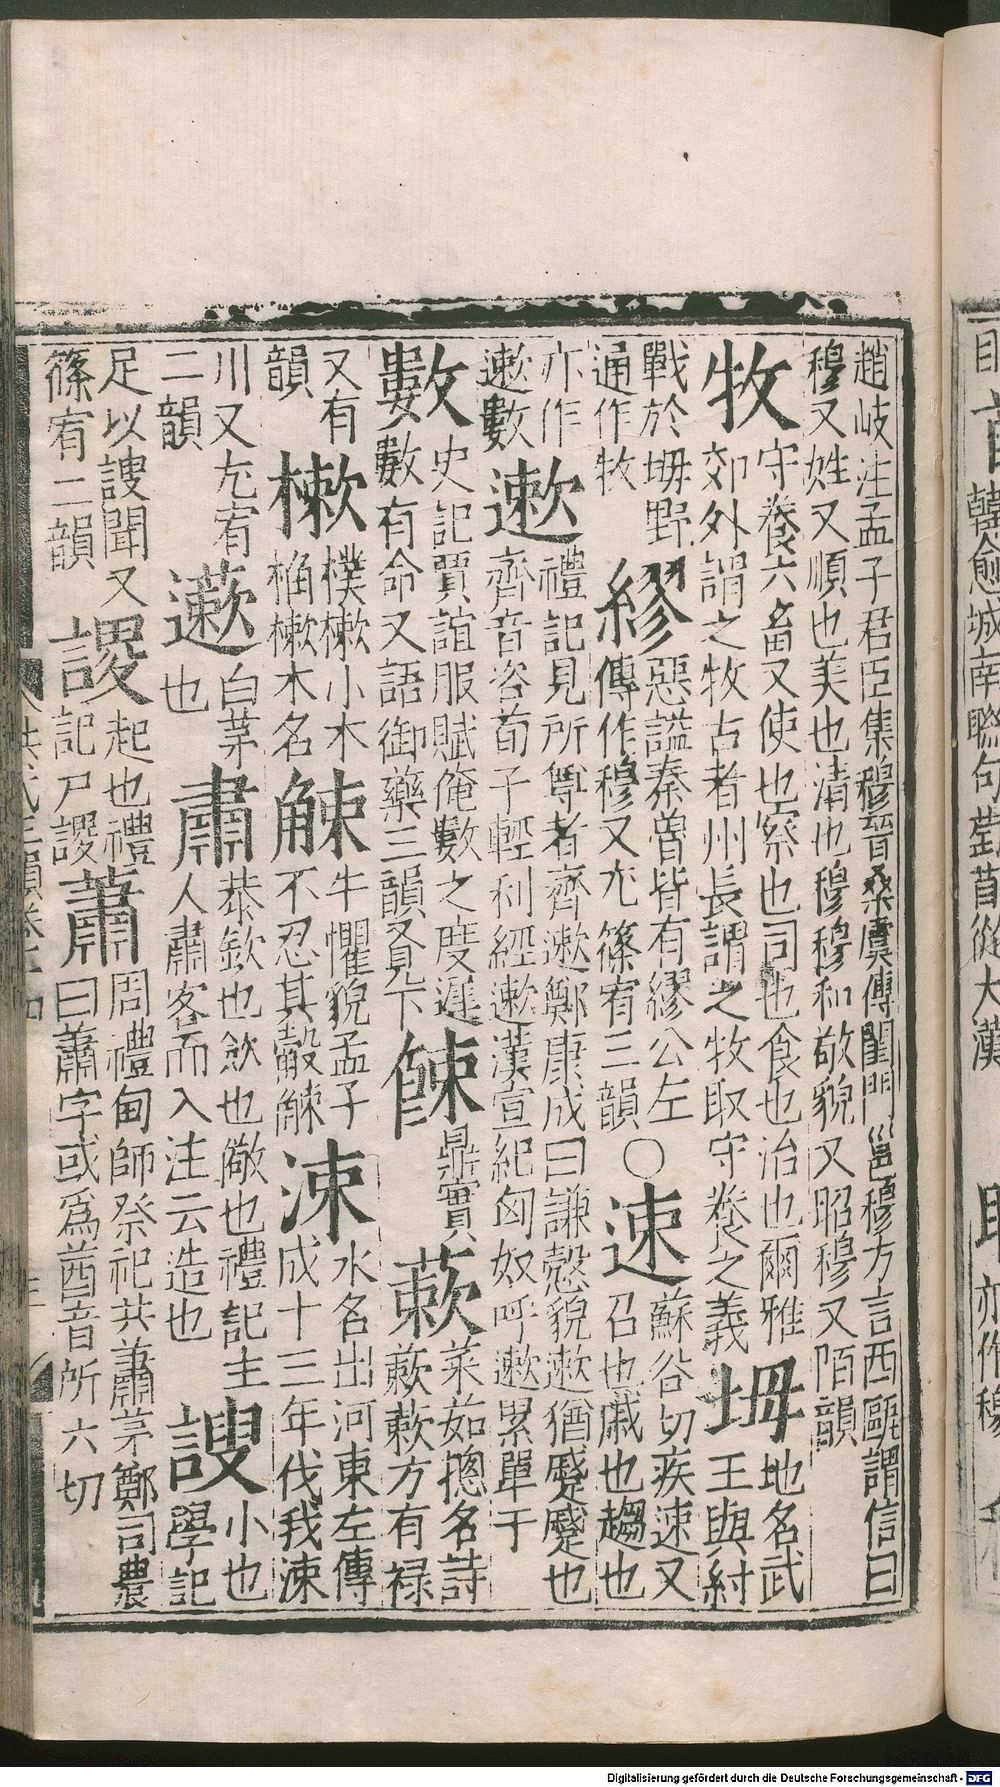 趙岐注孟子君臣集穆晉桑虞傳閨門邕穆方言西甌謂信曰
穆又姓又順也美也清也穆穆和敬貌又昭穆又陌韻
牧 守養六畜又使也察也司也食也治也爾雅
郊外謂之牧古者州長謂之牧取守養之義 坶 地名武
王與紂
戰於坶野
通作牧 繆 惡謚秦曾皆有繆公左
傳作穆又尤篠宥三韻 ○ 速 蘇谷切疾速又
召也戚也趨也
亦作
遬數 遬 禮記見所尊者齊遬鄭康成曰謙愨貌遬猶蹙蹙也
齊音咨荀子輕利經遬漢宣紀匈奴呼遬累單于
數 史記賈誼服賦俺數之度遲
數有命又語御藥三韻又見下 餗 鼎實 蔌 菜茹摠名詩
蔌蔌方有祿
又有
韻 樕 樸樕小木
桷樕木名 觫 牛懼貌孟子
不忍其觳觫 涑 水名出河東左傳
成十三年伐我涑
川又尤宥
二韻 藗 白茅
也 肅 恭欽也斂也儆也禮記主
人肅客而入注云造也 謏 小也
學記
足以謏聞又
篠宥二韻 謖 起也禮
記尸謖 蕭 周禮甸師祭祀共蕭茅鄭司農
曰蕭字或爲莤音所六切
韓愈城南聯句
從大漢
亦作穆
Digitalisierung gefördert durch die Deutsche Forschungsgemeinschaft - DFG